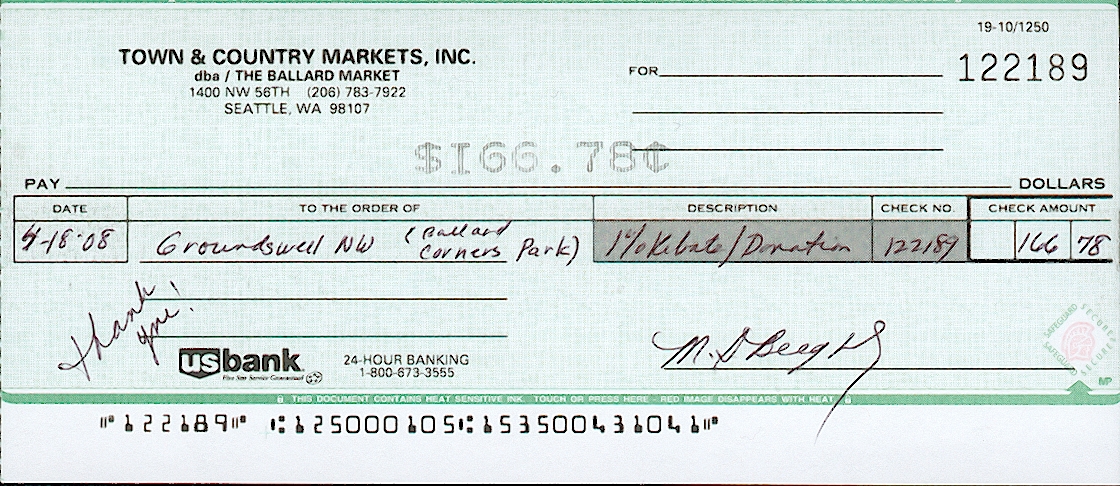 19-10/1250
TOWN & COUNTRY MARKETS, INC.
dba / THE BALLARD MARKET
1400 NW 56TH (206) 783-7922
SEATTLE, WA 98107
FOR
122189
$166.78¢
PAY
DOLLARS
DATE
TO THE ORDER OF
DESCRIPTION
CHECK NO.
CHECK AMOUNT
4-18-08
Groundswell NW (Ballard
Corners Park)
1% Rebate/Donation
122189
166 78
Thank
you!
usbank
Five Star Service Guaranteed
24-HOUR BANKING
1-800-673-3555
SAFEGUARD SECURE
MP
THIS DOCUMENT CONTAINS HEAT SENSITIVE INK. TOUCH OR PRESS HERE - RED IMAGE DISAPPEARS WITH HEAT.
⑈122189⑈ ⑆125000105⑆153500431041⑈